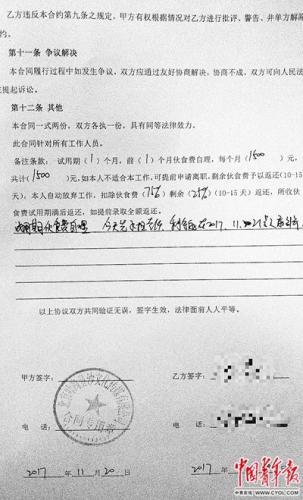 乙方违反本合约第九条之规定，甲方有权根据情况对乙方进行批评、警告、并单方解除
约。
第十一条 争议解决
本合同履行过程中如发生争议，双方应通过友好协商解决，协商不成，双方可向人民法
提起诉讼。
第十二条 其他
本合同一式两份，双方各执一份，具有同等法律效力。
此合同针对所有工作人员。
备注条款：试用期（1）个月，前（1）个月伙食费自理，每个月（1500）元，
共计（1500）元，如本人不适合本工作，可提前申请离职，剩余伙食费予以返还(10-15
天)，本人自动放弃工作，扣除伙食费（75%）剩余（25%）(10-15 天）返还，所收伙
食费试用期满后返还，如提前录取全额返还。
试用期伙食费自理 今天 2017.11.
以上协议双方共同验证无误，签字生效，法律面前人人平等。
甲方签字： 乙方签字：
合同专用章
电 话： 电 话：
2017 年 11 月 20 日 2017 年
中国青年报
中青在线 WWW.CYOL.COM